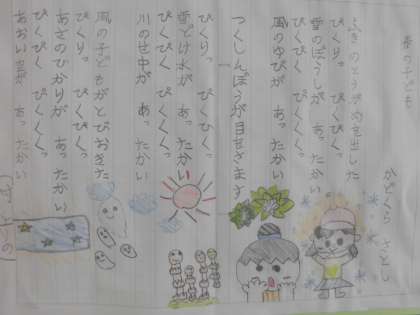 春の子ども
かどくら さとし
ふきのとうが 顔を出した
ぴくりっ ぴくぴくっ
雪のぼうしが あったかい
ぴくぴく ぴくくくっ
風のゆびが あったかい
つくしんぼうが 目をさます
ぴくりっ ぴくぴくっ
雪どけ水が あったかい
ぴくぴく ぴくくくっ
川のせ中が あったかい
風の子どもがとびおきた
ぴくりっ ぴくぴくっ
あさのひかりが あったかい
ぴくぴく ぴくくくっ
あおい空が あったかい